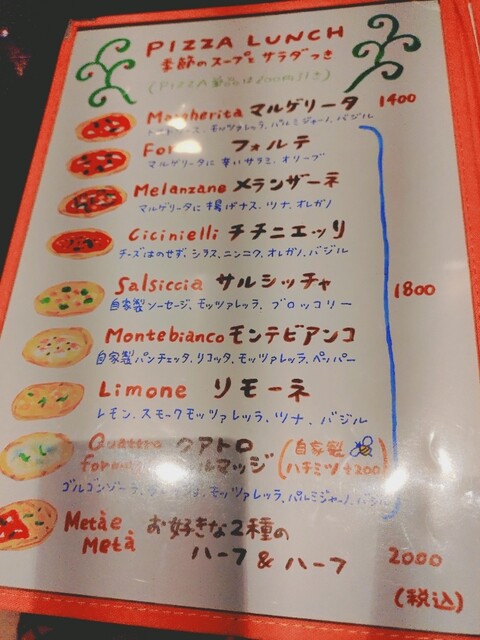 PIZZA LUNCH
季節のスープとサラダつき
Margherita マルゲリータ 1400
モッツァレッラ、パルミジャーノ、バジル
For フォルテ
マルゲリータに辛いサラミ、オリーブ
Melanzane メランザーネ
マルゲリータに揚げナス、ツナ、オレガノ
Cicinielli チチニエッリ
チーズはのせず、シラス、ニンニク、オレガノ、バジル
Salsiccia サルシッチャ
1800
自家製ソーセージ、モッツァレッラ、ブロッコリー
Montebianco モンテビアンコ
自家製パンチェッタ、リコッタ、モッツァレッラ、ペッパー
Limone リモーネ
レモン、スモークモッツァレッラ、ツナ、バジル
Quattro クアトロ
ルマッジ
(自家製
ハチミツ +200)
ゴルゴンゾーラ、モッツァレッラ、パルミジャーノ、バジル
Metàe お好きな2種の
Metà ハーフ & ハーフ 2000
(税込)